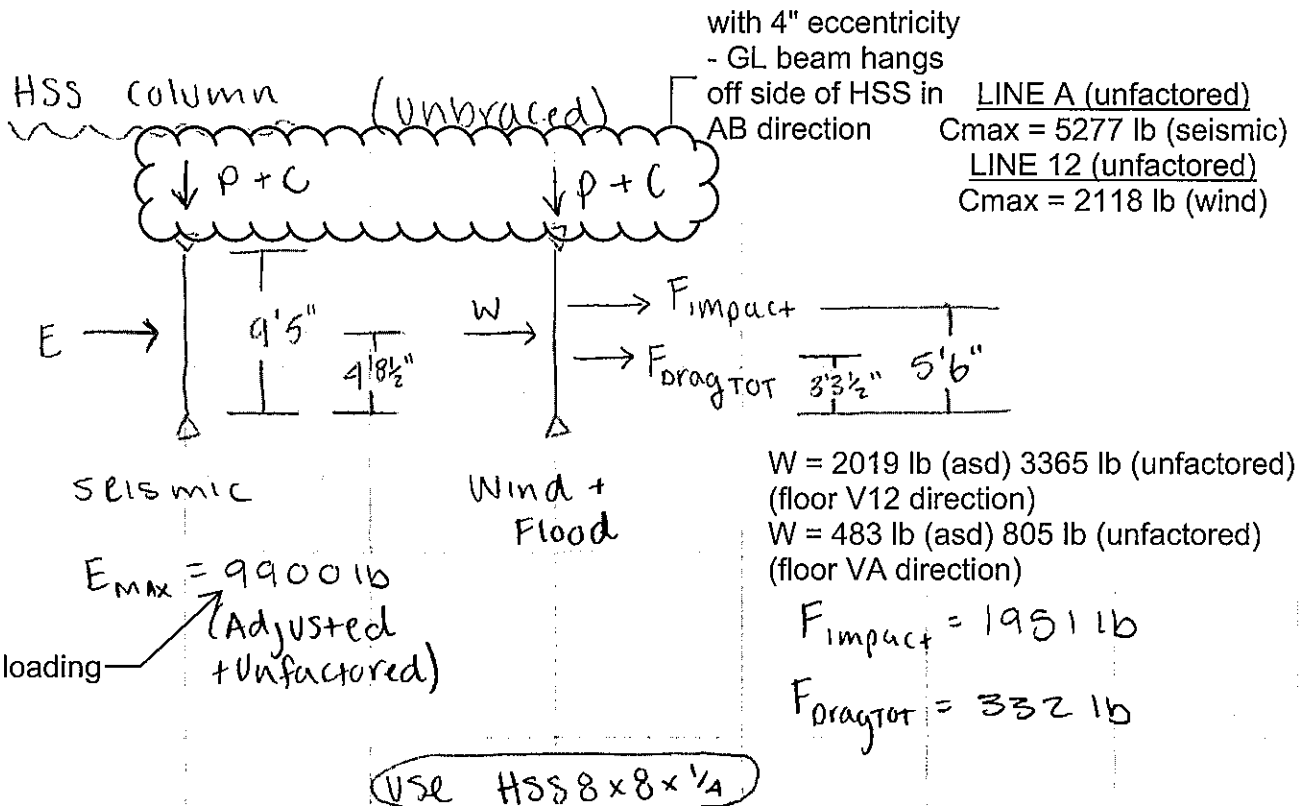 with 4" eccentricity
- GL beam hangs
off side of HSS in
AB direction
LINE A (unfactored)
Cmax = 5277 lb (seismic)
LINE 12 (unfactored)
Cmax = 2118 lb (wind)
HSS column (unbraced)
P + C
P + C
E
9'5"
4'8½"
W
Fimpact
FDragTOT
3'3½"
5'6"
seismic
Wind +
Flood
W = 2019 lb (asd) 3365 lb (unfactored)
(floor V12 direction)
W = 483 lb (asd) 805 lb (unfactored)
(floor VA direction)
EMAX = 9900 lb
(Adjusted
+ Unfactored)
loading
Fimpact = 1951 lb
FDragTOT = 332 lb
USE HSS 8 x 8 x 1/4